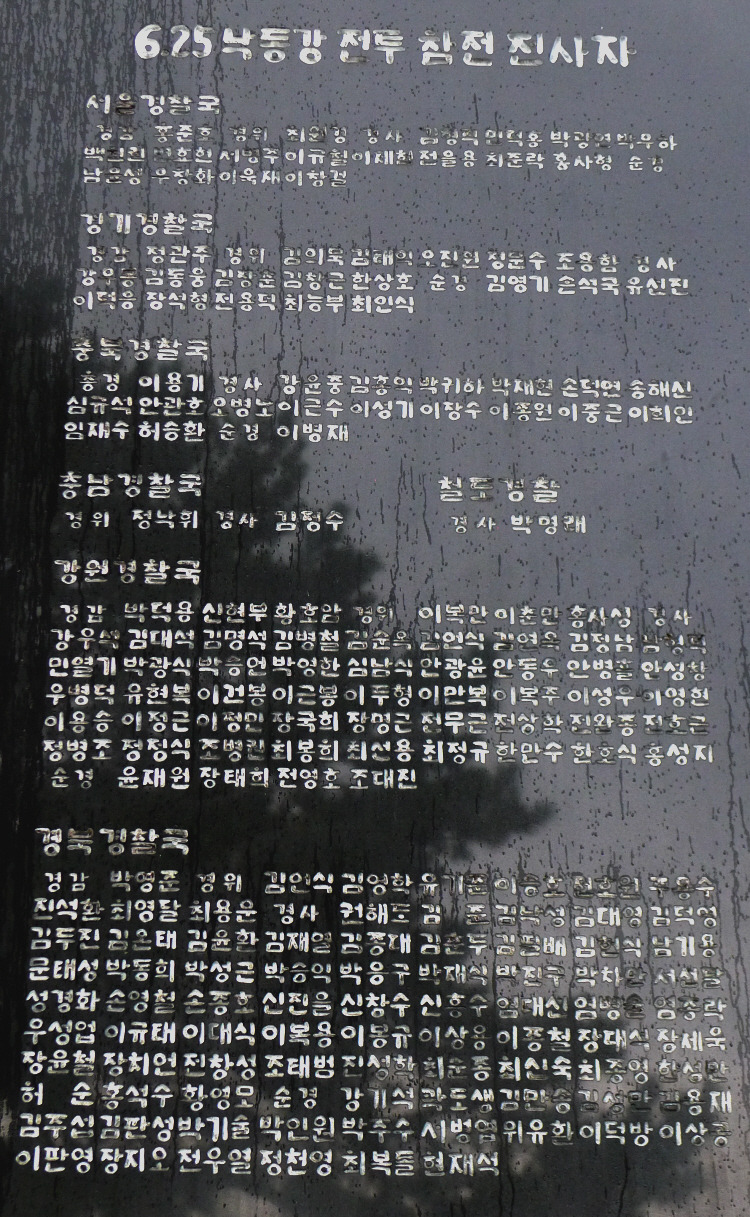 6.25 낙동강 전투 참전 전사자
서울경찰국
경감 홍준호 경위 최원형 경사 민덕홍 박광연 박무하
서병주 이규철 이재현 전을용 최준락 홍사형 순경
남은성 우창화 이욱재 이창걸
경기경찰국
경감 정관주 경위 김희묵 김태익 오진원 정문수 조용함 경사
김동웅 김정훈 김창근 한상호 순경 김영기 손석국 유신진
이덕웅 장석형 전용덕 최능부 최인식
충북경찰국
총경 이용기 경사 강윤중 김홍익 박귀하 박재현 손덕연 송해신
심규식 안관호 오병노 이근수 이성기 이장수 이종원 이중근 이희인
임재수 허승환 순경 이병재
충남경찰국
경위 정낙휘 경사 김정수
철도경찰
경사 박명래
강원경찰국
경감 박덕용 신현부 황호암 경위 이복만 이춘만 홍사성 경사
강우석 김대석 김명석 김병철 김순옥 김언식 김연옥 김정남
민열기 박광식 박승언 박영한 심남식 안광윤 안동우 안병흘 안성창
우병덕 유현복 이건봉 이근봉 이두형 이만복 이복주 이성우 이영헌
이용승 이정근 이정민 장국희 장명근 전무근 전상학 전완종 전호근
정병조 정정식 조병진 최봉희 최선용 최정규 한만수 한호식 홍성지
순경 윤재원 장태희 전영호 조대진
경북경찰국
경감 박영준 경위 김언식 김영학 이승호 주용수
진석환 최영달 최용운 경사 권해도 김 준 김남성 김대영 김덕영
김두진 김오태 김윤환 김재열 김종대 김준두 김필배 김현식 남기용
문태성 박동희 박성근 박승익 박응구 박재식 박진구 서선달
성경화 손영철 손종호 신진을 신창수 신흥수 엄대선 엄병술 염종락
우성업 이규태 이대식 이복용 이봉규 이상용 이종철 장대식 장세욱
장윤철 장치언 진창성 조태범 진성학 최순종 최신숙 최종영 한성만
허 순 홍석수 황영모 순경 강기석 곽도생 김만송 김성만 김용재
김주섭 김판성 박기술 박인원 박주수 서병엽 위유환 이덕방 이상공
이판영 장지오 전우열 정천영 최복돌 현재석